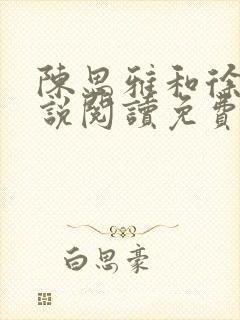 陳思雅和徐
說閱讀免費
白思豪